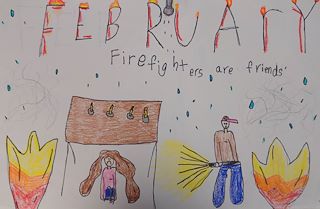 FEBRUArY
Firefighters are friends